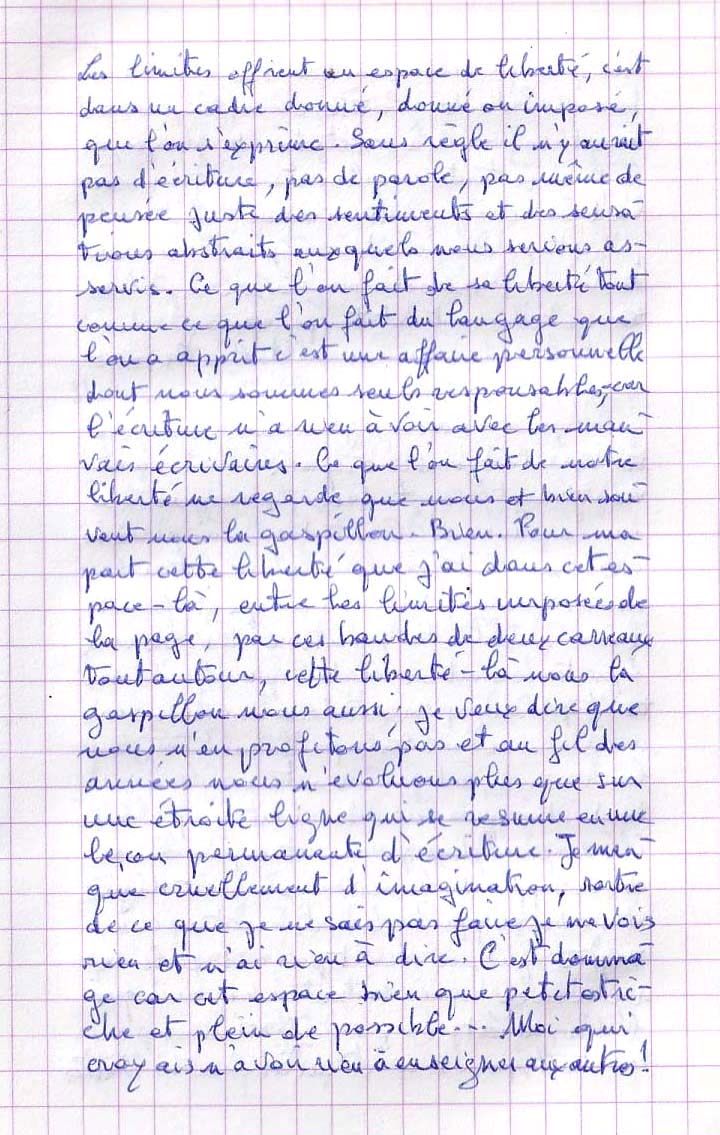 Les limites offrent un espace de liberté, c'est
dans un cadre donné, donné ou imposé,
que l'on s'exprime. Sans règle il n'y aurait
pas d'écriture, pas de parole, pas même de
pensée juste des sentiments et des sensa-
tions abstraits auxquels nous serions as-
servis. Ce que l'on fait de sa liberté tout
comme ce que l'on fait du langage que
l'on a apprit c'est une affaire personnelle
dont nous sommes seuls responsables, car
l'écriture n'a rien à voir avec les mau-
vais écrivaires. Ce que l'on fait de notre
liberté ne regarde que nous et bien sou-
vent nous la gaspillon. Bien. Pour ma
part cette liberté que j'ai dans cet es-
pace-là, entre les limites imposées de
la page, par ces bandes de deux carreaux
tout autour, cette liberté-là nous la
gaspillon nous aussi; je veux dire que
nous n'en profitons pas et au fil des
années nous n'évoluons plus que sur
une étroite ligne qui se resume en une
leçon permanente d'écriture. Je man-
que cruellement d'imagination, sortie
de ce que je ne sais pas faire je ne vois
rien et n'ai rien à dire. C'est domma-
ge car cet espace bien que petit est ri-
che et plein de possible... Moi qui
croyais n'avoir rien à enseigner aux autres!